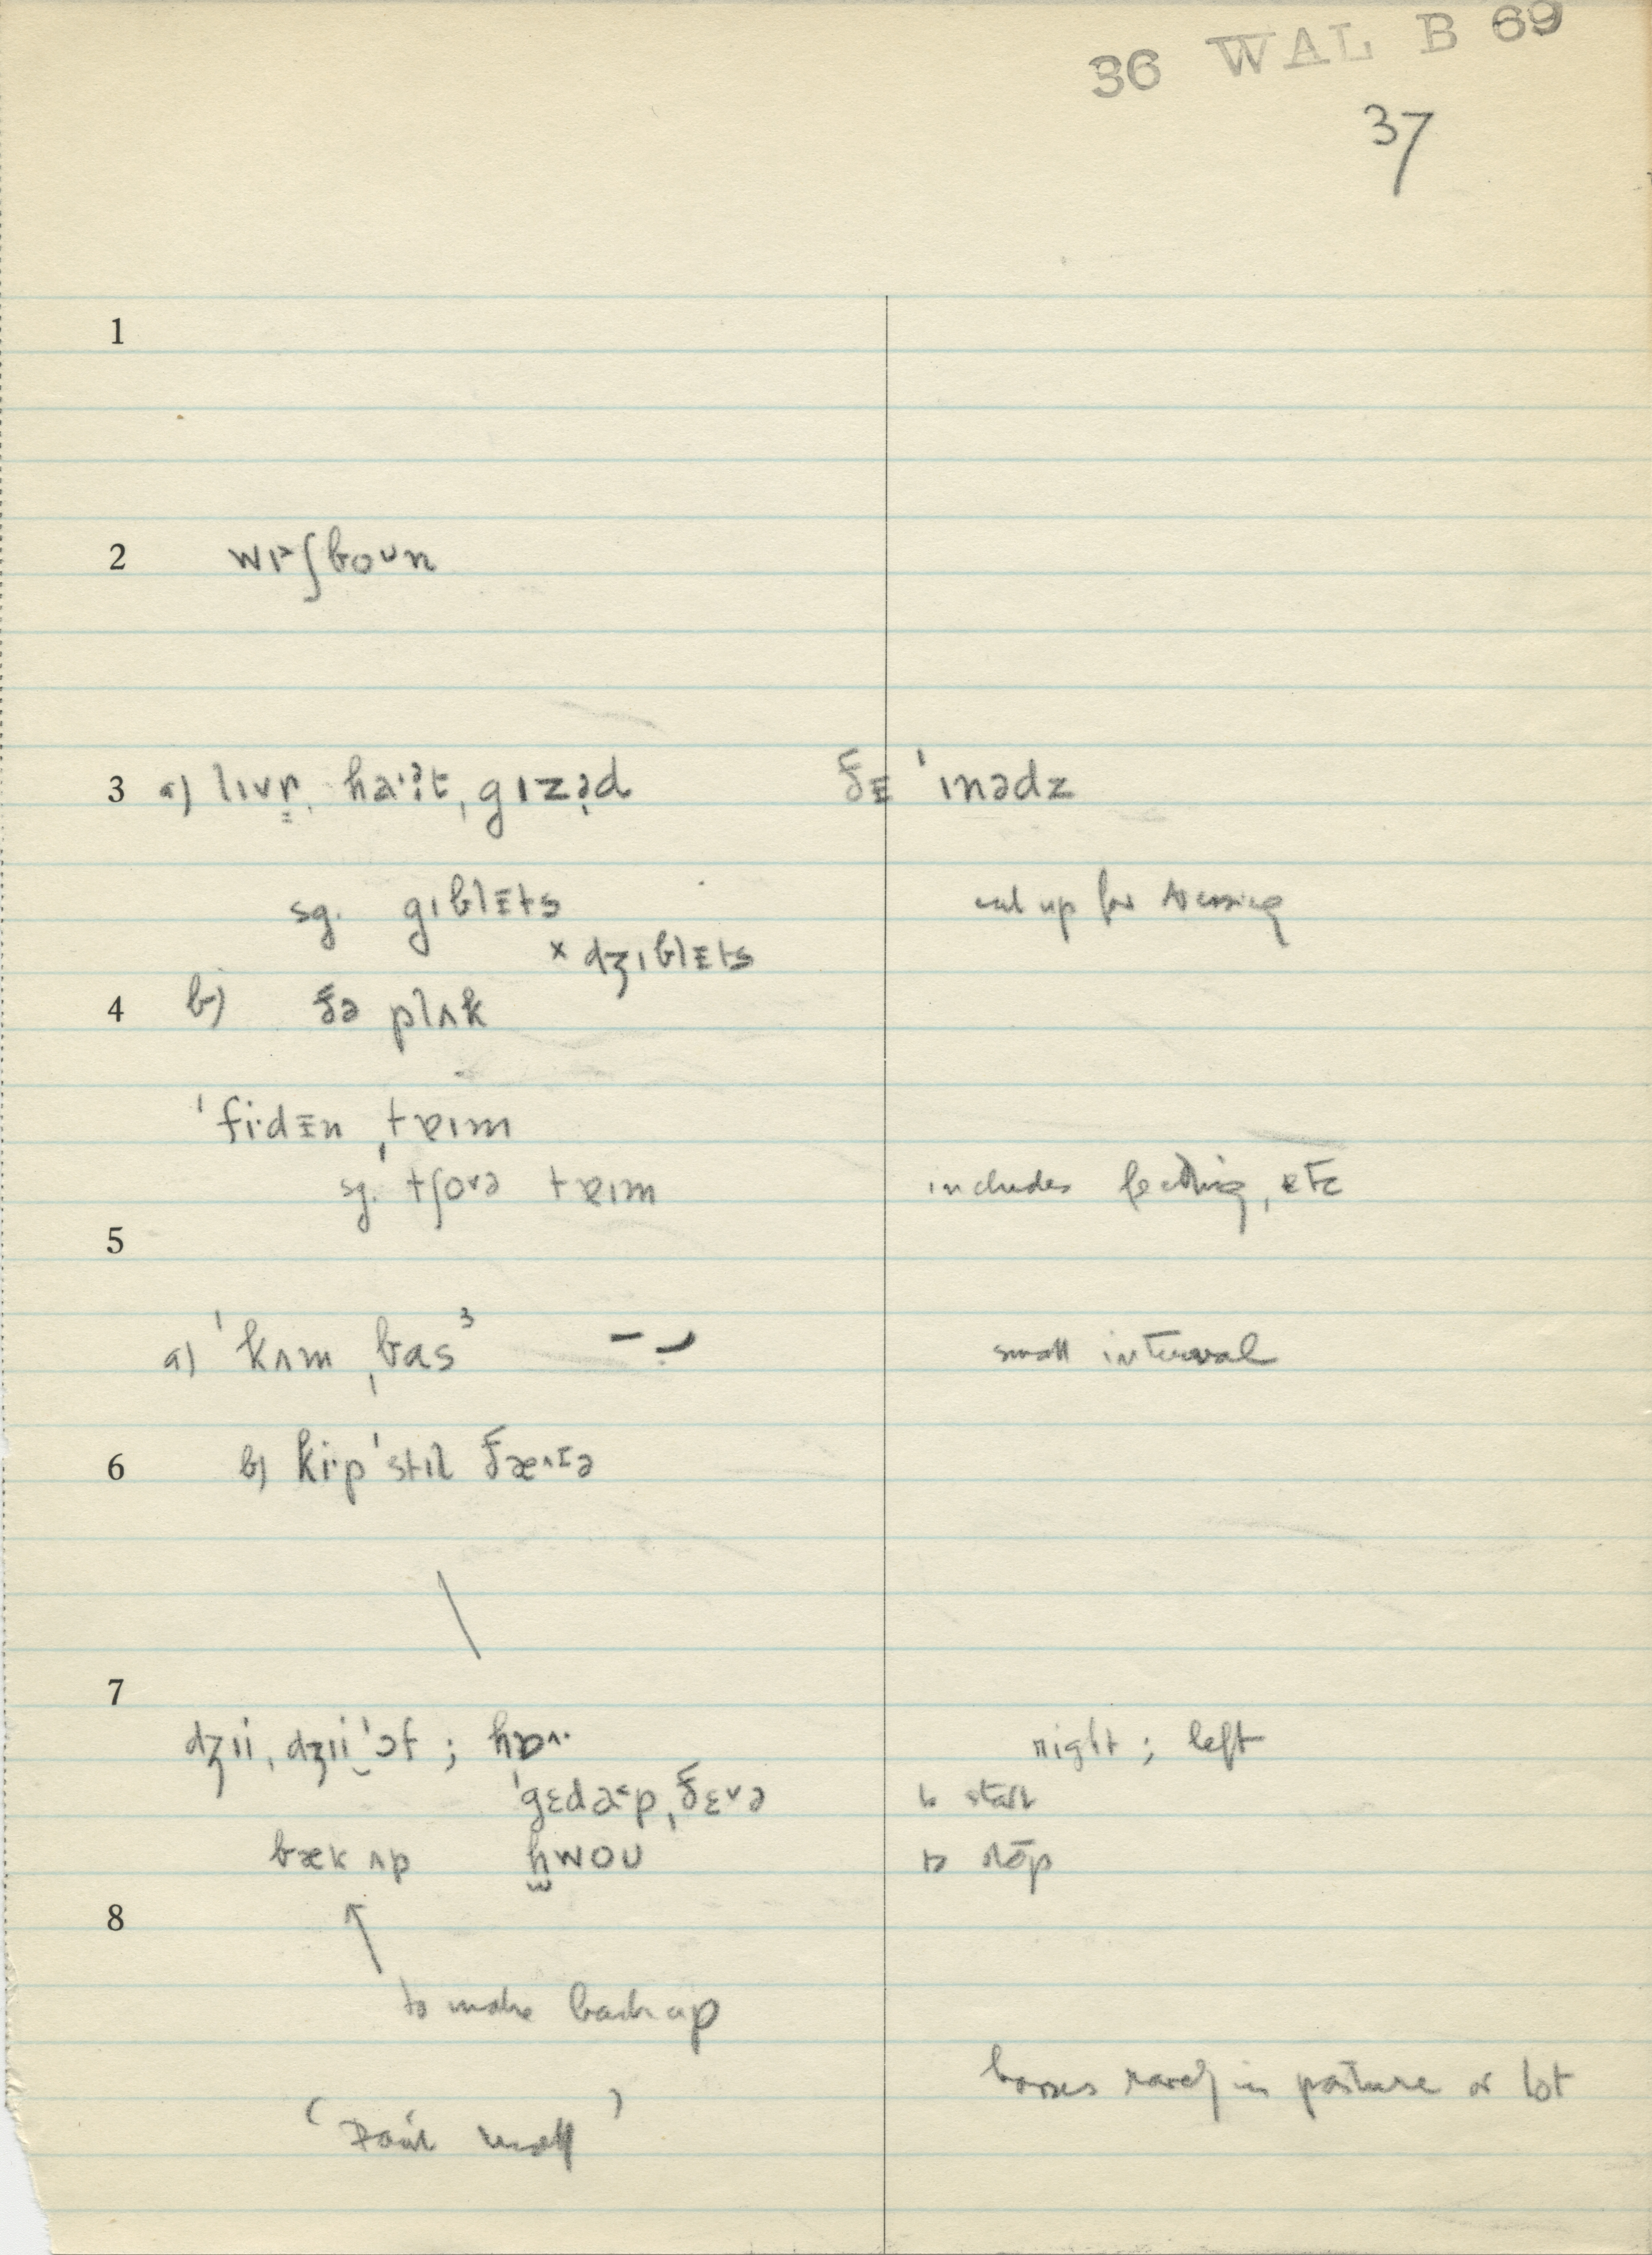 36 WAL B 69
37
1
2 wɪᵊʃboʊn
3 a) lɪvr̩, ha·ə̣t, gɪzə̣d ðᴇ ˈɪnədz
sg. gɪblᴇts cut up for
× dʒɪblᴇts
4 b) ðə plʌk
ˈfi·dᴇn ˌtɐɪm
sg. tʃovə tɐɪm includes feeding, etc
5
a) ˈkʌm ˌbas³ small interval
6 b) ki·p ˈstɪl ðæ^ɪə
7
dʒɪi, dʒɪi ˈɔf ; hɒ^· right ; left
ˈgɛdəp, ðɛvə to start
bæk ʌp hwoʊ to stop
8
to make back up
horses in pasture or lot
( )